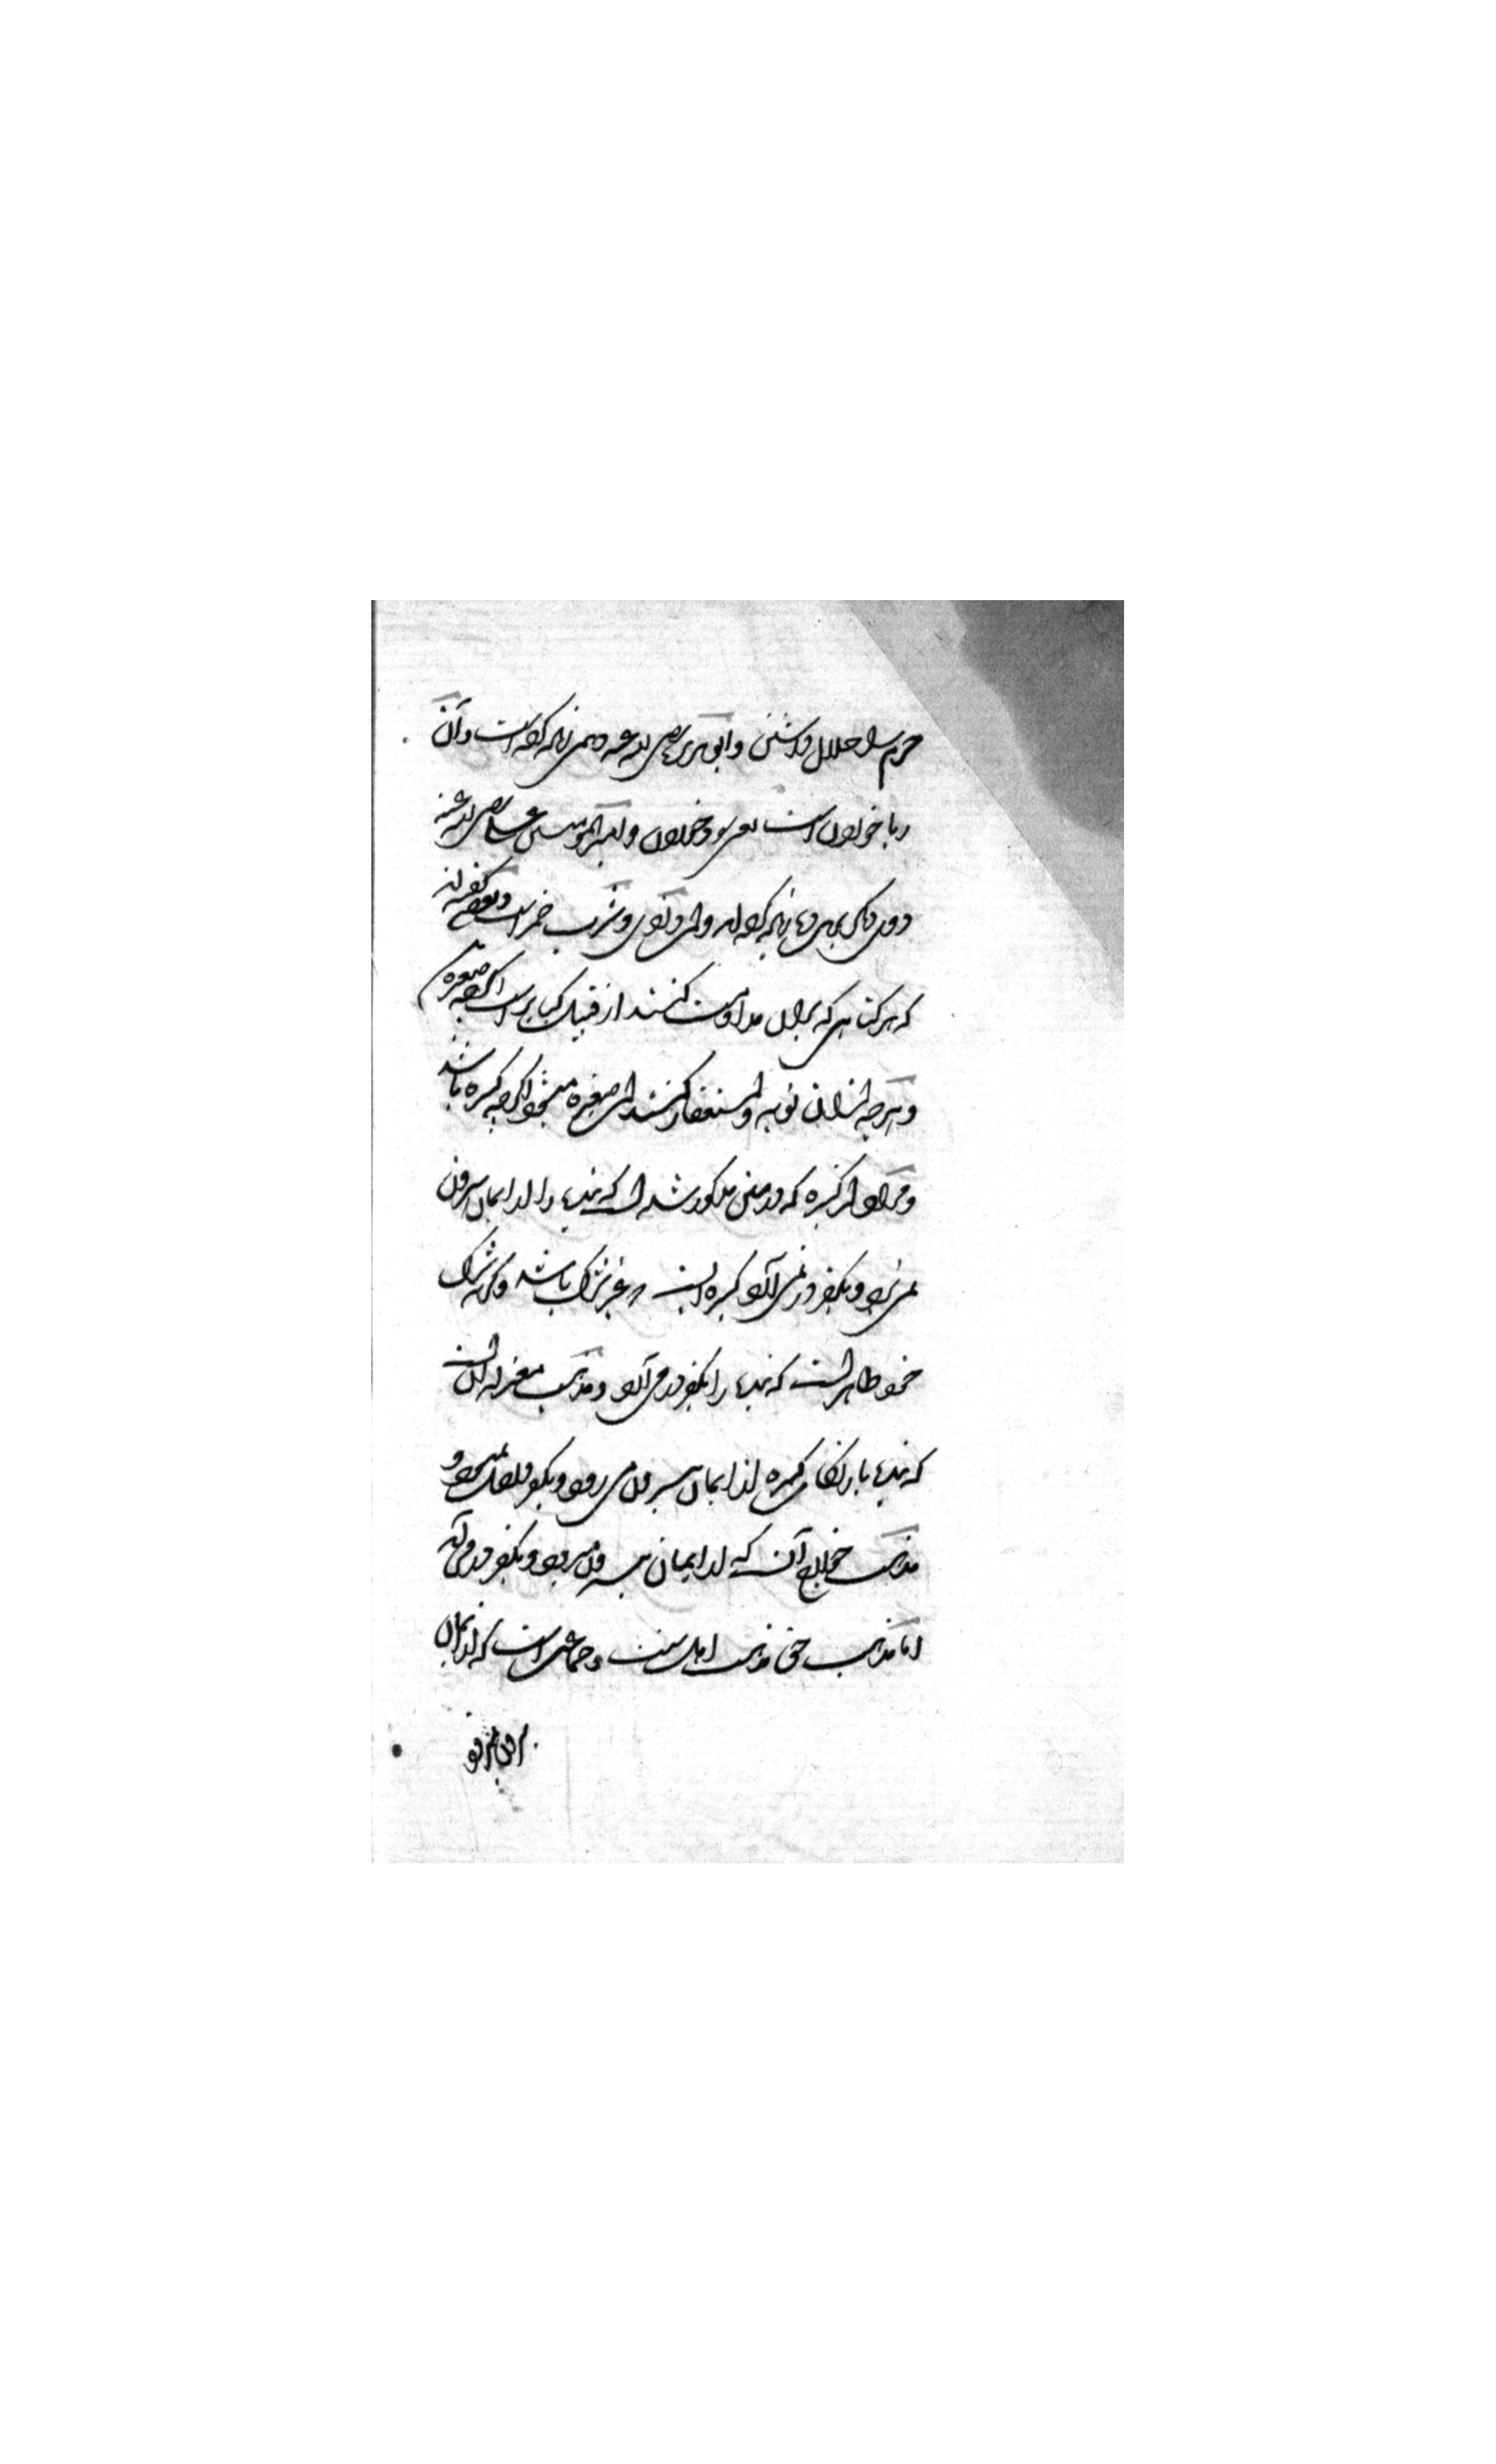 حرم را حلال داشتن و ابو هریره رضی الله عنه دهمی زیاده کرده است و آن
ربا خوردن است یعنی سود خوردن و امیر المؤمنین علی رضی الله عنه
دو دیگر برین زیاده کرده اند و آن دزدی و شرب خمر است و بعضی گفته اند
که هر گناهی که بران مداومت کنند از قبیل کبایر است اگرچه صغیره
و هرچه از ان توبه و استغفار کنند ان صغیره میشود اگرچه کبیره باشد
و مراد از کبیره که در متن مذکور شده است که بنده را از ایمان بیرون
نمی برد و بکفر در نمی آرد کبیره ایست که غیر شرک باشد و گرنه شرک
خود ظاهر است که بنده را بکفر در می آرد و مذهب معتزله آن است
که بنده بارتکاب کبیره از ایمان بیرون می رود و بکفر داخل نمیشود و
مذهب خوارج آن که از ایمان بیرون میرود و بکفر در می آید
اما مذهب حق مذهب اهل سنت و جماعت است که از ایمان
بیرون نمیرود